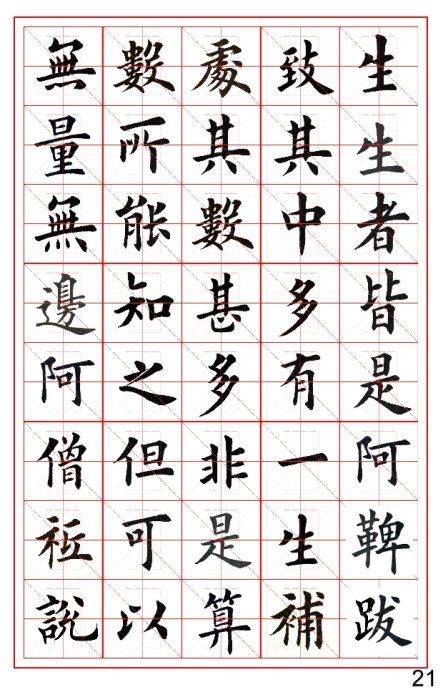 生生者皆是阿鞞跋
致其中多有一生補
處其數甚多非是算
數所能知之但可以
無量無邊阿僧祇說
21